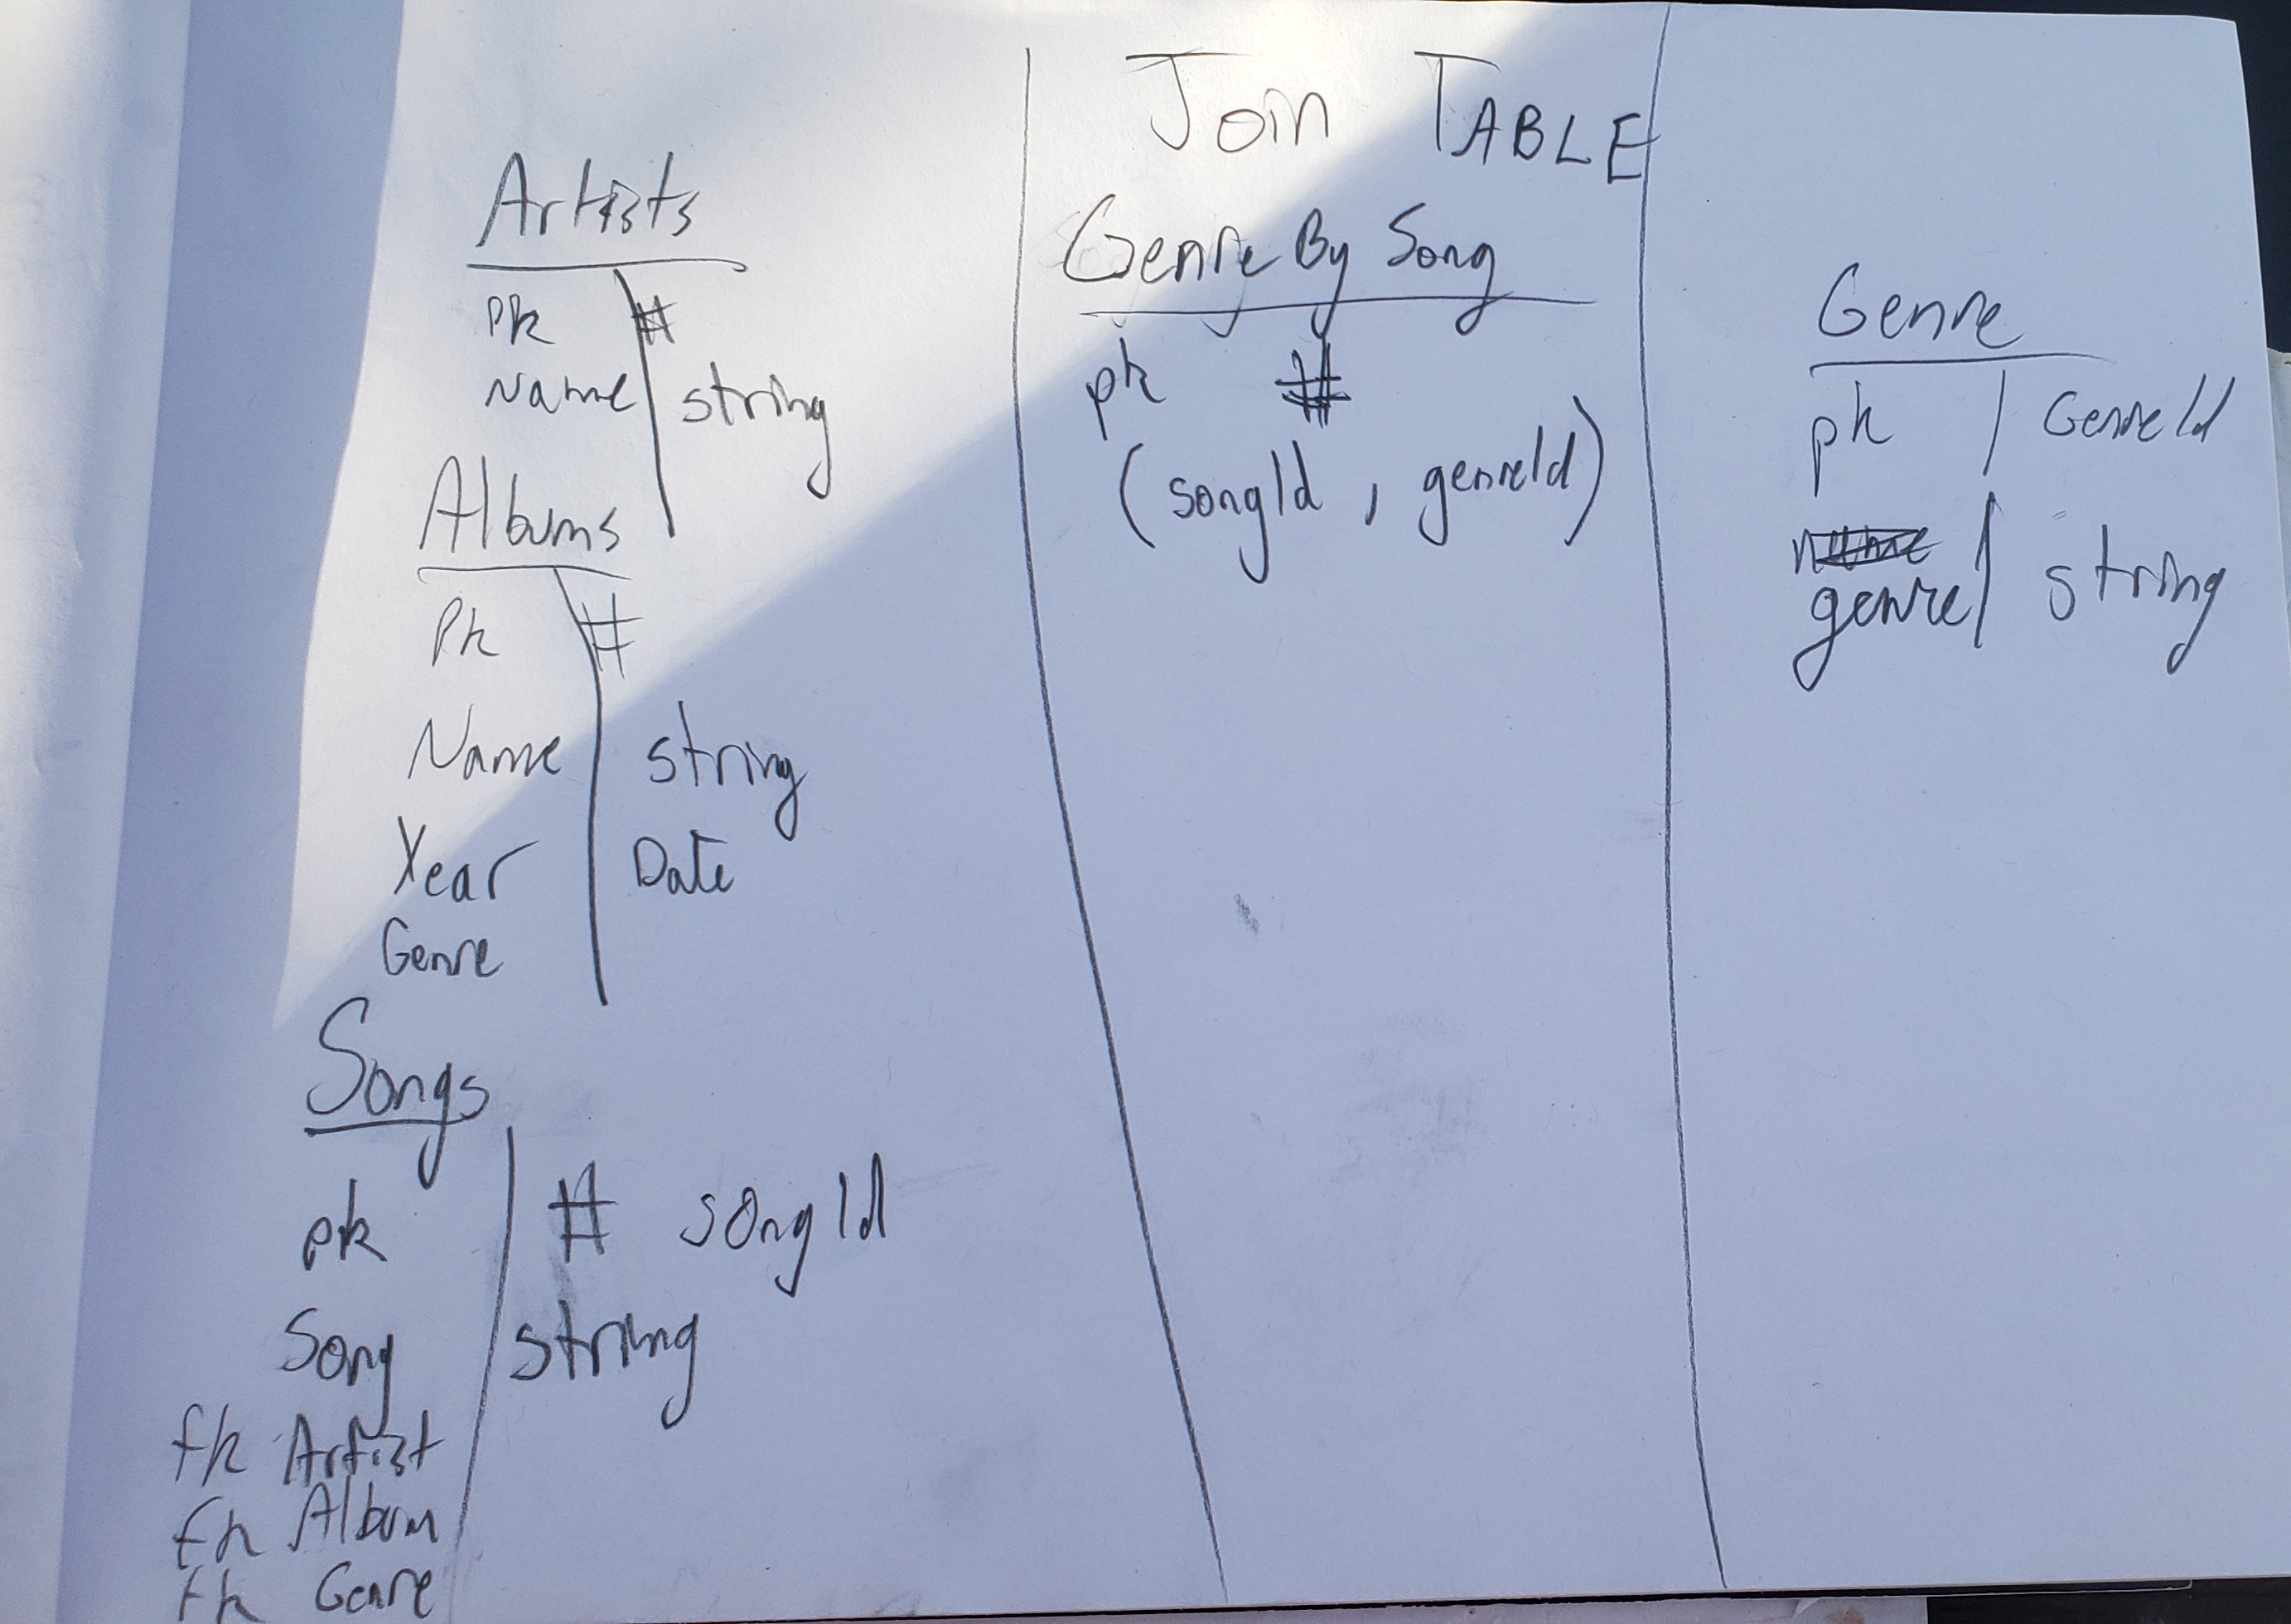 Artists
pk #
Name string
Albums
Pk #
Name string
Year Date
Genre
Songs
pk # songId
Song string
fk Artist
fk Album
fk Genre
Join TABLE
Genre By Song
pk #
(songId , genreId)
Genre
pk GenreId
genre string